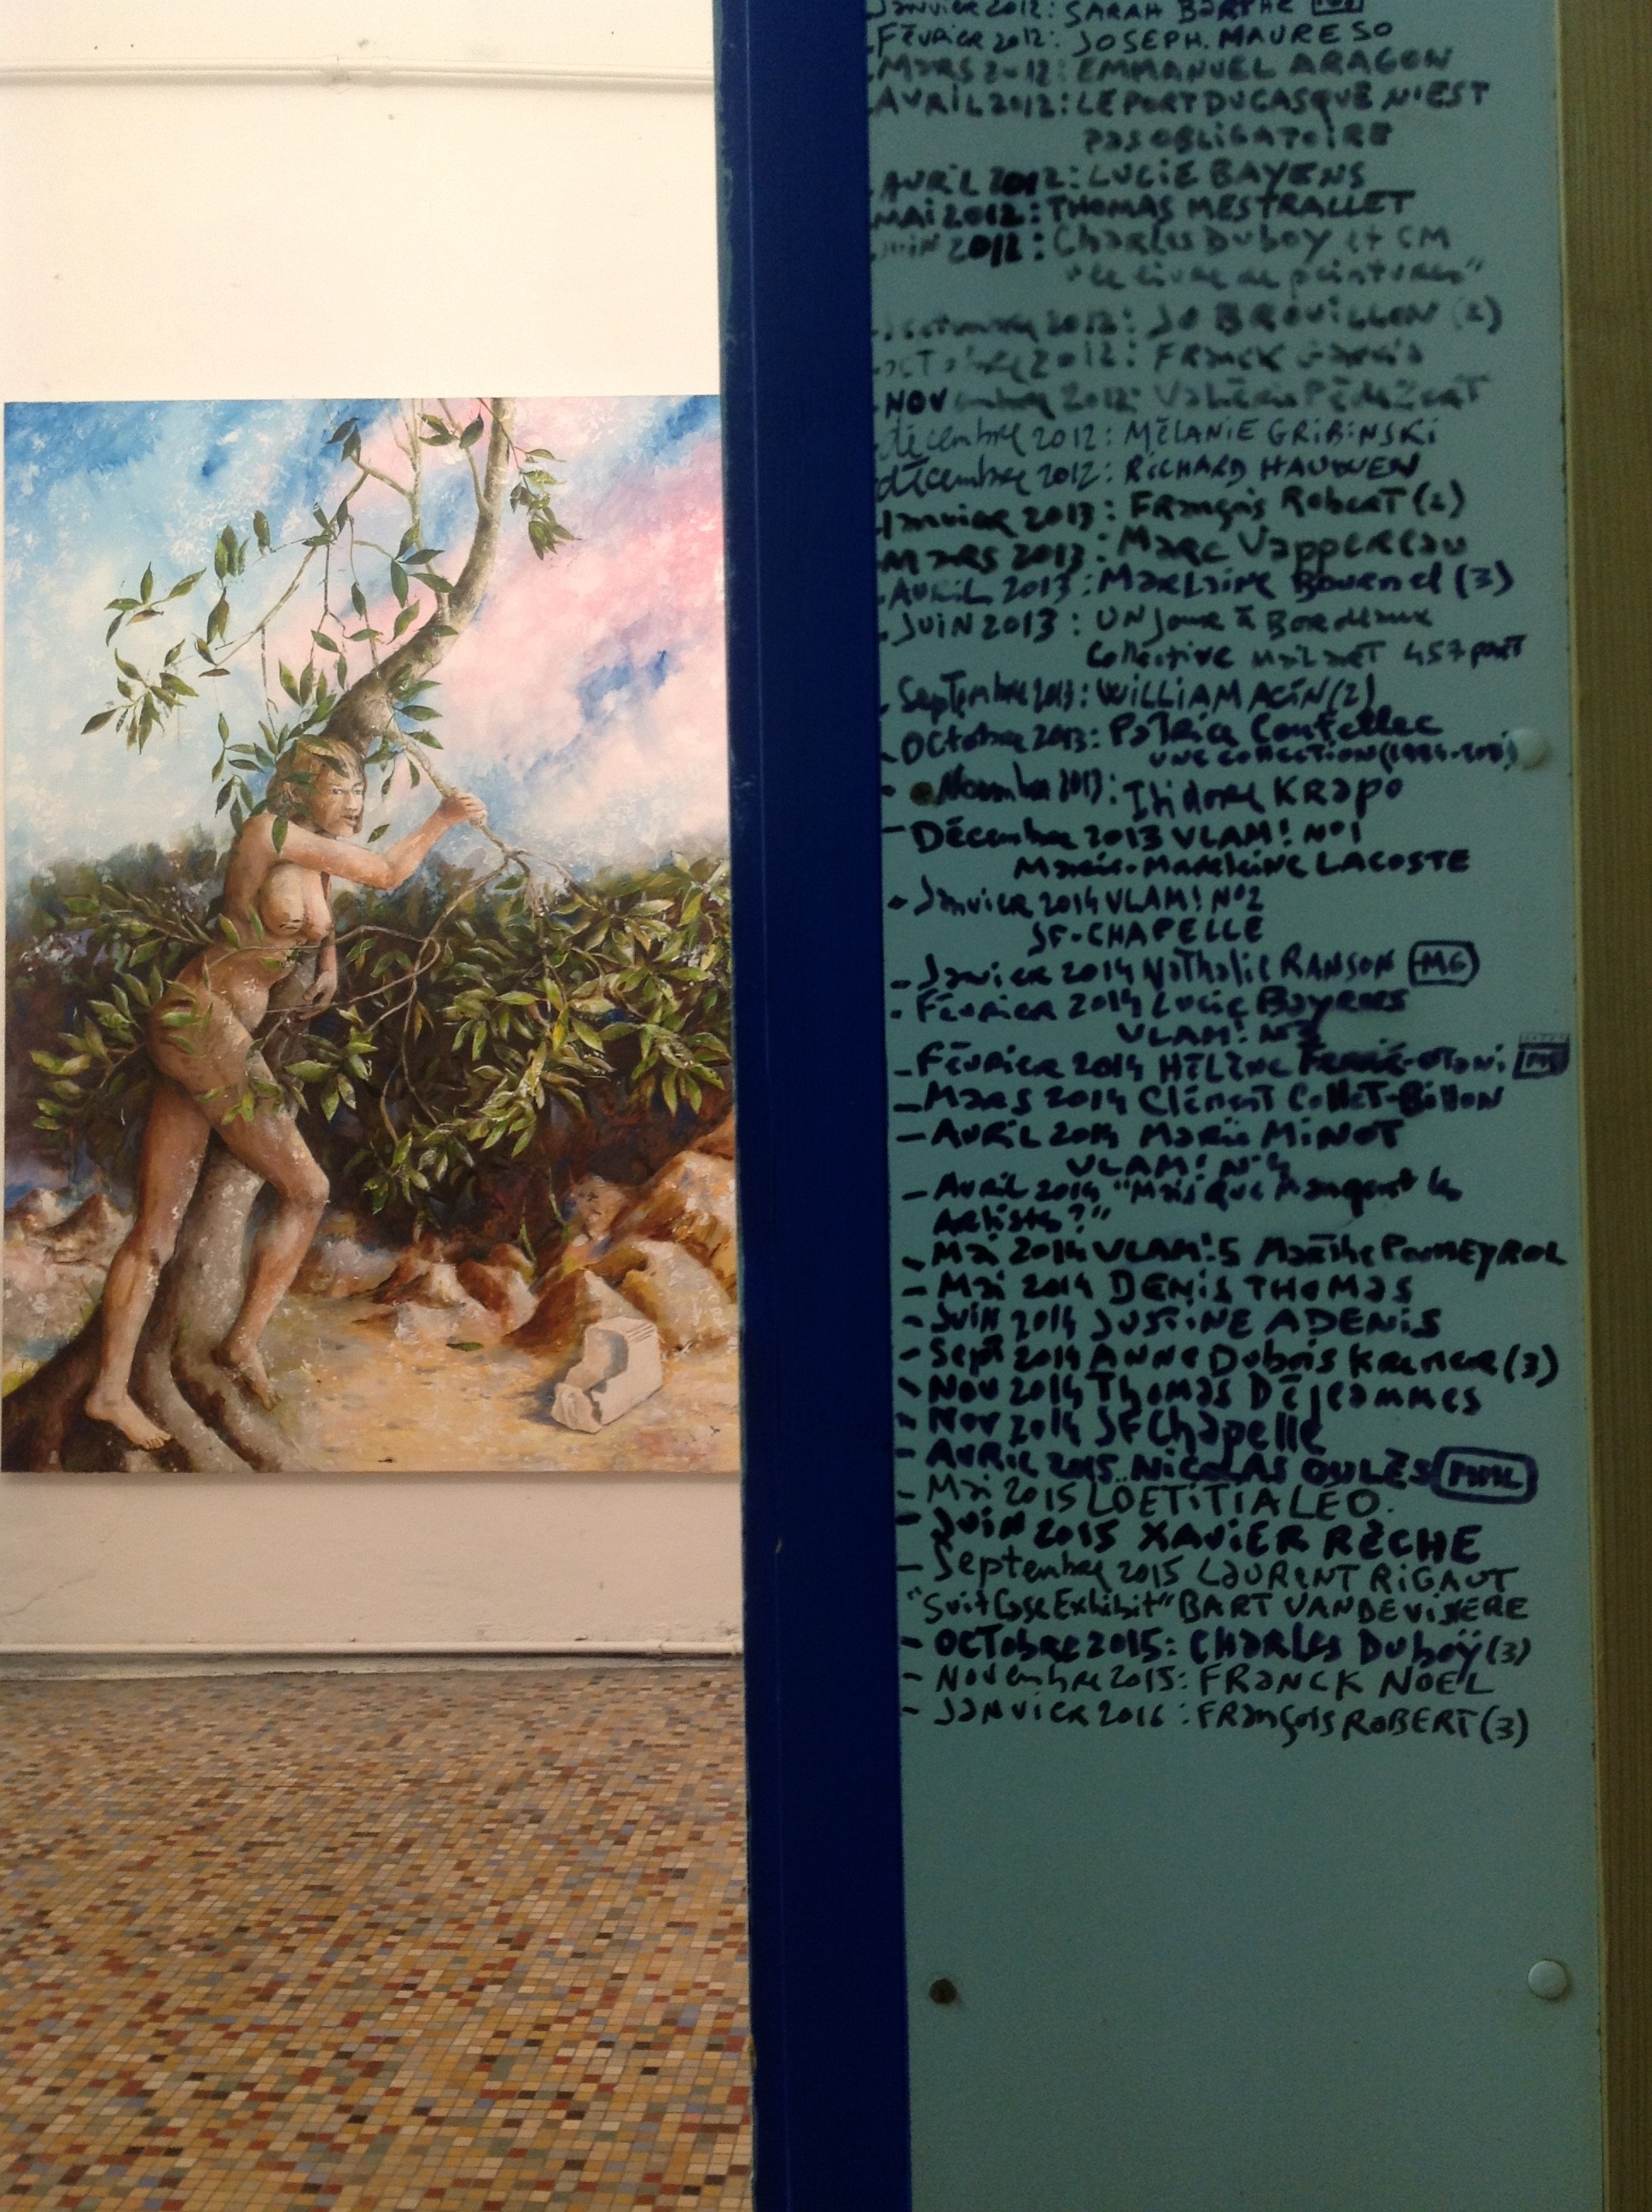 Janvier 2012: SARAH BARTHE
Février 2012: JOSEPH. MAURESO
MARS 2012: EMMANUEL ARAGON
AVRIL 2012: LE PORT DU CASQUE N'EST
PAS OBLIGATOIRE
AVRIL 2012: LUCIE BAYENS
MAI 2012: THOMAS MESTRALLET
JUIN 2012: Charles Duboy et CM
"Le livre de peintures"
2012: JO BROUILLON (2)
OCTobre 2012: Franck Garcia
NOVembre 2012:
décembre 2012: MÉLANIE GRIBINSKI
décembre 2012: RICHARD HAUDUEN
Janvier 2013: François Robert (2)
- MARS 2013: Marc Vappereau
- AVRIL 2013: Bournel (3)
- JUIN 2013: UN Jour à Bordeaux
Collective MailArt 457 part
- Septembre 2013: WILLIAM ACIN (2)
- OCTobre 2013:
UNE COLLECTION
- Novembre 2013: Isidore KRAPO
- Décembre 2013 VLAM! N°1
Marie-Madeleine LACOSTE
- Janvier 2014 VLAM! N°2
JF-CHAPELLE
- Janvier 2014 Nathalie RANSON MG
- Février 2014 Lucie Bayens
VLAM! N°3
- Février 2014 HÉLÈNE
- Mars 2014 Clément Collet-Billon
- AVRIL 2014 Marie MINOT
VLAM! N°4
- Avril 2014 "Mais que mangent les
Artistes?"
- Mai 2014 VLAM! 5 Marthe PUMEYROL
- Mai 2014 DENIS THOMAS
- Juin 2014 JUSTINE ADENIS
- Sept 2014 ANNE Dubois Kremer (3)
- Nov 2014 Thomas Déjeammes
- Nov 2014 JF Chapelle
- AVRIL 2015 NICOLAS OULÈS
- Mai 2015 LOETITIA LEO.
- JUIN 2015 XAVIER RÈCHE
- Septembre 2015 LAURENT RIGAUT
"Suit Case Exhibit" BART VANDEVIJVERE
- OCTobre 2015: CHARLES DUBOŸ (3)
- Novembre 2015: FRANCK NOËL
- JANVIER 2016: FRANÇOIS ROBERT (3)